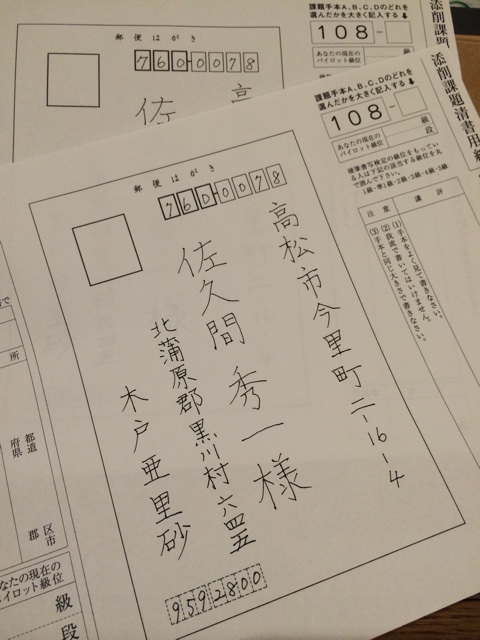 郵便はがき
7600078
高
佐
課題手本A、B、C、Dのどれを
選んだかを大きく記入する
108-
あなたの現在の
パイロット級位
級
添削課題
郵便はがき
7600078
高松市今里町二-16-4
佐久間秀一様
北蒲原郡黒川村六四五
木戸亜里砂
9592800
課題手本A、B、C、Dのどれを
選んだかを大きく記入する
108-
あなたの現在の
パイロット級位
級
段
硬筆書写検定の級位をもってい
る人は下記の該当する級位を丸
で囲んで下さい。
1級・準1級・2級・3級・4級・5級
注意
講評
(1)手本をよく見て書きなさい。
(2)我流で書いてはいけません。
(3)手本と同じ大きさで書きなさい。
添削課題清書用紙
所
都道
府県
区市
郡
なたの現在の
イロット級位
級
段